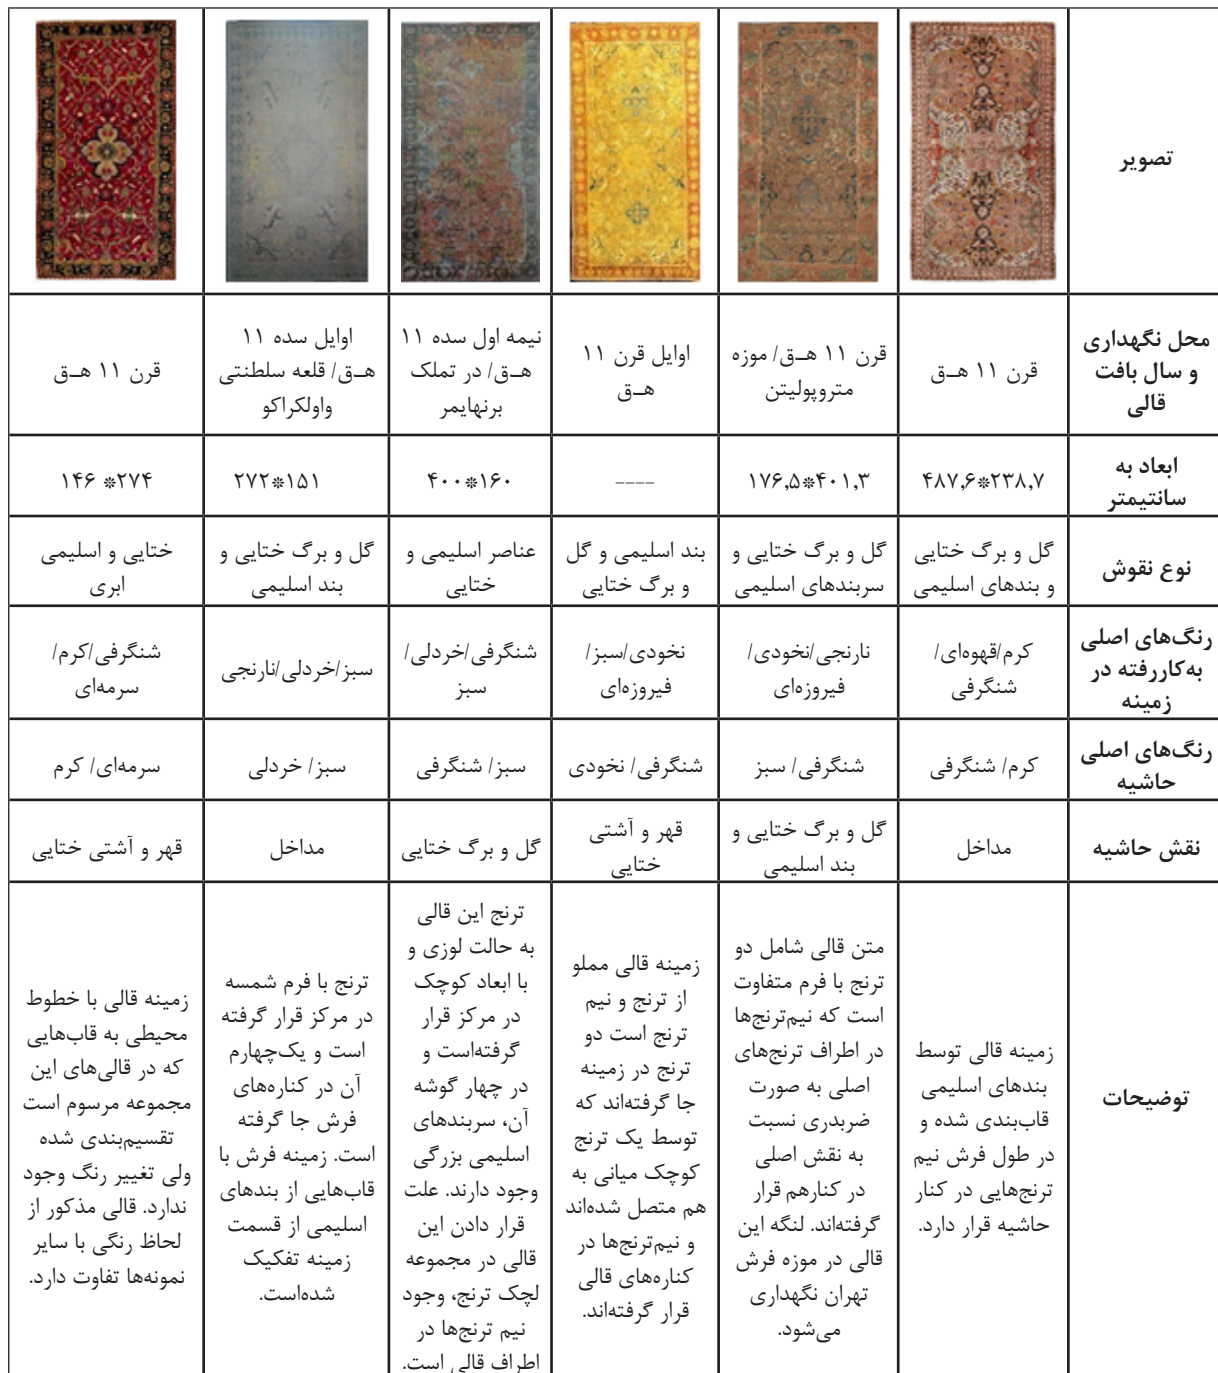 تصویر
محل نگهداری
و سال بافت
قالی
قرن ۱۱ هـ‌ق
قرن ۱۱ هـ‌ق/ موزه
متروپولیتن
اوایل قرن ۱۱
هـ‌ق
نیمه اول سده ۱۱
هـ‌ق/ در تملک
برنهایمر
اوایل سده ۱۱
هـ‌ق/ قلعه سلطنتی
واولکراکو
قرن ۱۱ هـ‌ق
ابعاد به
سانتیمتر
۴۸۷,۶*۲۳۸,۷
۱۷۶,۵*۴۰۱,۳
----
۴۰۰*۱۶۰
۲۷۲*۱۵۱
۱۴۶ *۲۷۴
نوع نقوش
گل و برگ ختایی
و بندهای اسلیمی
گل و برگ ختایی و
سربندهای اسلیمی
بند اسلیمی و گل
و برگ ختایی
عناصر اسلیمی و
ختایی
گل و برگ ختایی و
بند اسلیمی
ختایی و اسلیمی
ابری
رنگ‌های اصلی
به‌کاررفته در
زمینه
کرم/قهوه‌ای/
شنگرفی
نارنجی/نخودی/
فیروزه‌ای
نخودی/سبز/
فیروزه‌ای
شنگرفی/خردلی/
سبز
سبز/خردلی/نارنجی
شنگرفی/کرم/
سرمه‌ای
رنگ‌های اصلی
حاشیه
کرم/ شنگرفی
شنگرفی/ سبز
شنگرفی/ نخودی
سبز/ شنگرفی
سبز/ خردلی
سرمه‌ای/ کرم
نقش حاشیه
مداخل
گل و برگ ختایی و
بند اسلیمی
قهر و آشتی
ختایی
گل و برگ ختایی
مداخل
قهر و آشتی ختایی
توضیحات
زمینه قالی توسط
بندهای اسلیمی
قاب‌بندی شده و
در طول فرش نیم
ترنج‌هایی در کنار
حاشیه قرار دارد.
متن قالی شامل دو
ترنج با فرم متفاوت
است که نیم‌ترنج‌ها
در اطراف ترنج‌های
اصلی به صورت
ضربدری نسبت
به نقش اصلی
در کنارهم قرار
گرفته‌اند. لنگه این
قالی در موزه فرش
تهران نگهداری
می‌شود.
زمینه قالی مملو
از ترنج و نیم
ترنج است دو
ترنج در زمینه
جا گرفته‌اند که
توسط یک ترنج
کوچک میانی به
هم متصل شده‌اند
و نیم‌ترنج‌ها در
کناره‌های قالی
قرار گرفته‌اند.
ترنج این قالی
به حالت لوزی و
با ابعاد کوچک
در مرکز قرار
گرفته‌است و
در چهار گوشه
آن، سربندهای
اسلیمی بزرگی
وجود دارند. علت
قرار دادن این
قالی در مجموعه
لچک ترنج، وجود
نیم ترنج‌ها در
اطراف قالی است.
ترنج با فرم شمسه
در مرکز قرار گرفته
است و یک‌چهارم
آن در کناره‌های
فرش جا گرفته
است. زمینه فرش با
قاب‌هایی از بندهای
اسلیمی از قسمت
زمینه تفکیک
شده‌است.
زمینه قالی با خطوط
محیطی به قاب‌هایی
که در قالی‌های این
مجموعه مرسوم است
تقسیم‌بندی شده
ولی تغییر رنگ وجود
ندارد. قالی مذکور از
لحاظ رنگی با سایر
نمونه‌ها تفاوت دارد.